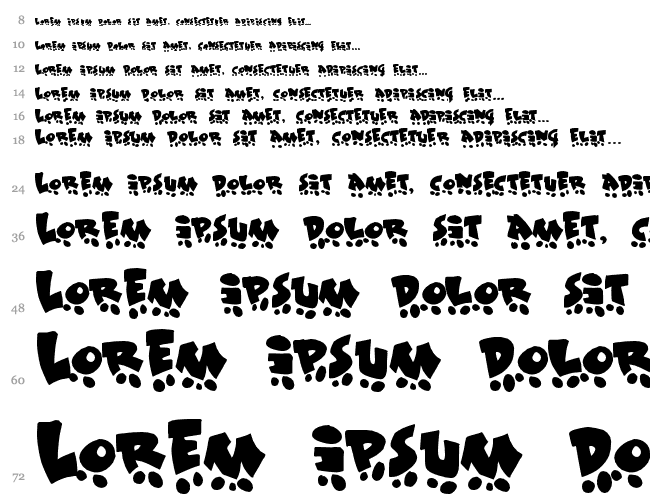 8 Lorem ipsum dolor sit amet, consectetuer adipiscing elit...
10 Lorem ipsum dolor sit amet, consectetuer adipiscing elit...
12 Lorem ipsum Dolor sit Amet, consectetuer adipiscing Elit...
14 Lorem ipsum Dolor sit Amet, consectetuer adipiscing Elit...
16 Lorem ipsum Dolor sit Amet, consectetuer adipiscing Elit...
18 Lorem ipsum Dolor sit Amet, consectetuer adipiscing Elit...
24 Lorem ipsum Dolor sit Amet, consectetuer adip
36 Lorem ipsum Dolor sit Amet, c
48 Lorem ipsum Dolor sit
60 Lorem ipsum Dolor
72 Lorem ipsum Do